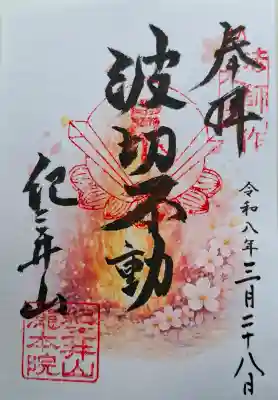 奉拝
令和八年三月二十八日
波切不動
紀三井山
紀三井山
瀧本院